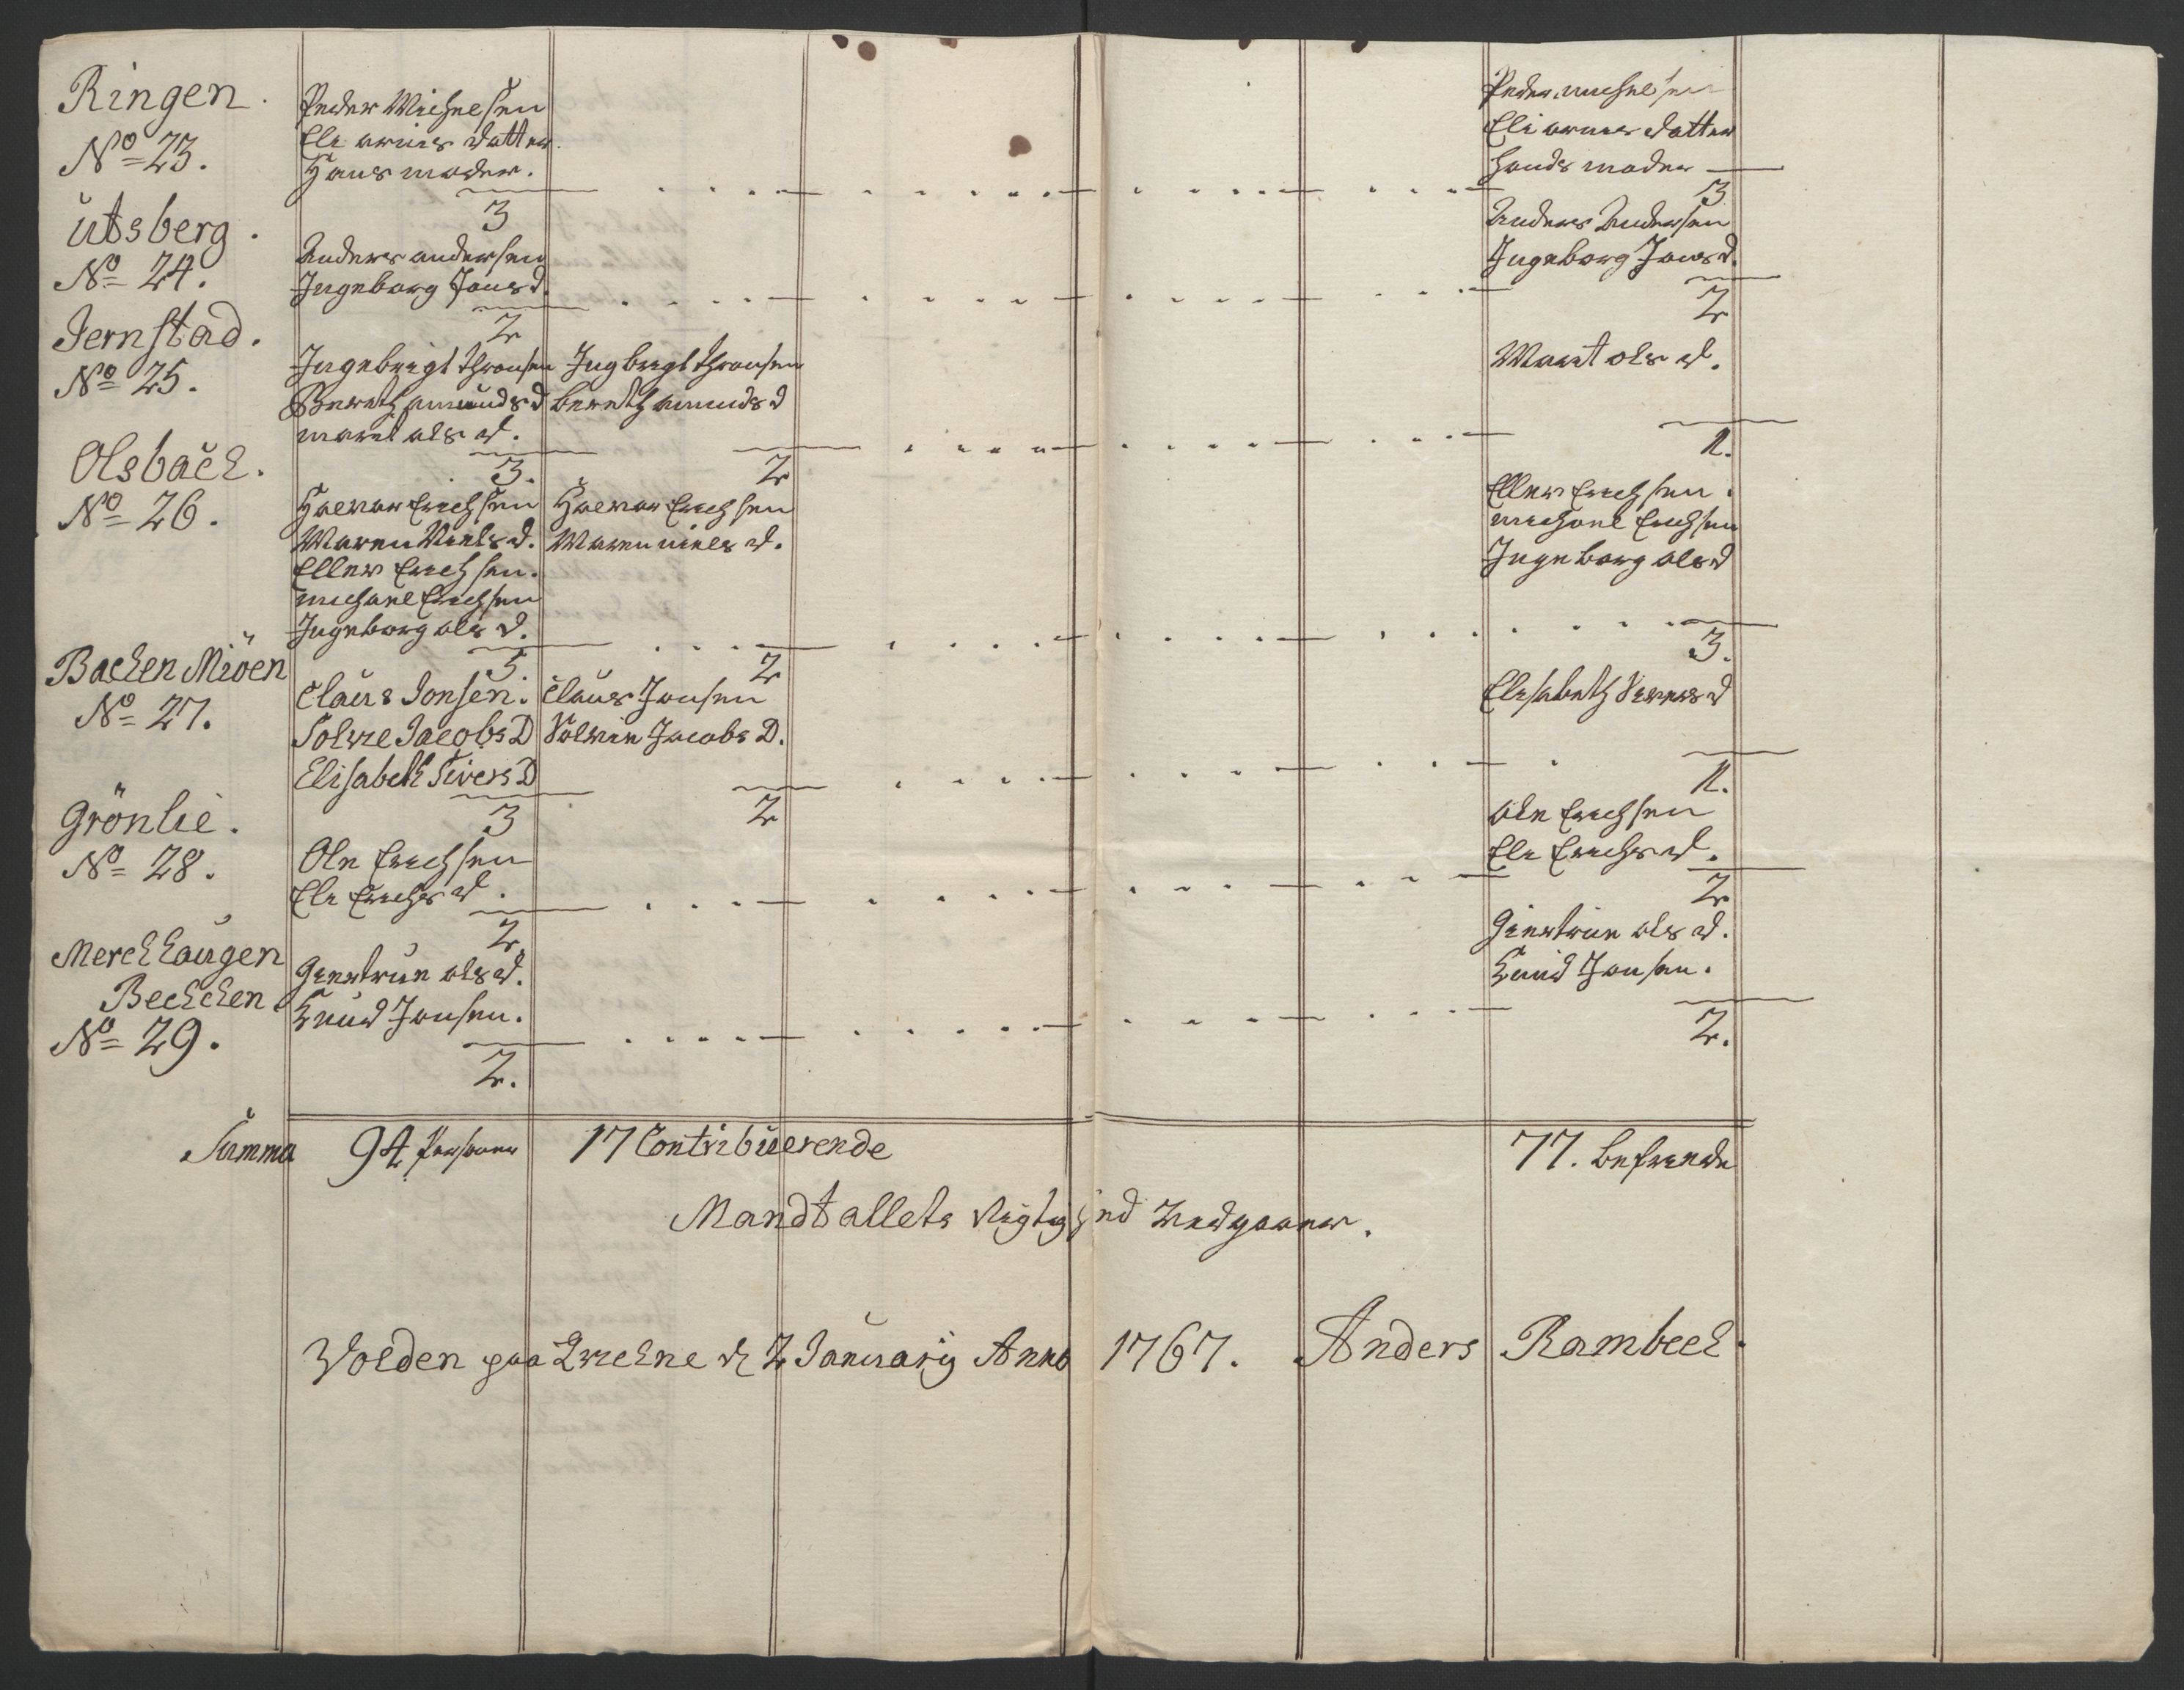 Ringen.
No 23.
Peder Michelsen
Eli arnes datter.
Hans moder.
3
Peder michelsen
Eli arnes datter
hands moder
3
Utsberg.
No 24.
Anders andersen
Ingeborg Jonsd.
2
Anders Andersen
Ingeborg Jonsd.
2
Jernstad.
No 25.
Ingebrigt thronsen
Bereth amundsd
maret ols d.
3.
Ingbrigt thronsen
bereth amundsd
2
Marit ols d.
1.
Olsbach.
No 26.
Halvor Erichsen
Maren Niels d.
Eller Erichsen.
michael Erichsen
Ingeborg ols d.
5.
Halvor Erichsen
Maren niels d.
2
Eller Erichsen.
michael Erichsen
Ingeborg olsd
3.
Backen Miöen
No 27.
Claus Jonsen.
Solvie Jacobs D
Elisabeth Sivers D
3
Claus Jonsen
Jacobs D.
2
Elisabeth Siversd
1.
Grönlie.
No 28.
Ole Erichsen
Eli Erichs d.
2
Ole Erichsen
Eli Erichs d.
2
Merckhaugen
Beckcken
No 29.
Giertrue ols d.
Knud Jonsen.
2.
Giertrue ols d.
Knud Jonsen.
2.
Summa 94 Persoener 17 Contribuerende 77. befriede
Mandtallets Rigtighed Vedgaaer.
Volden paa Qvickne d 2 Januarij Anno 1767. Anders Rambeck.